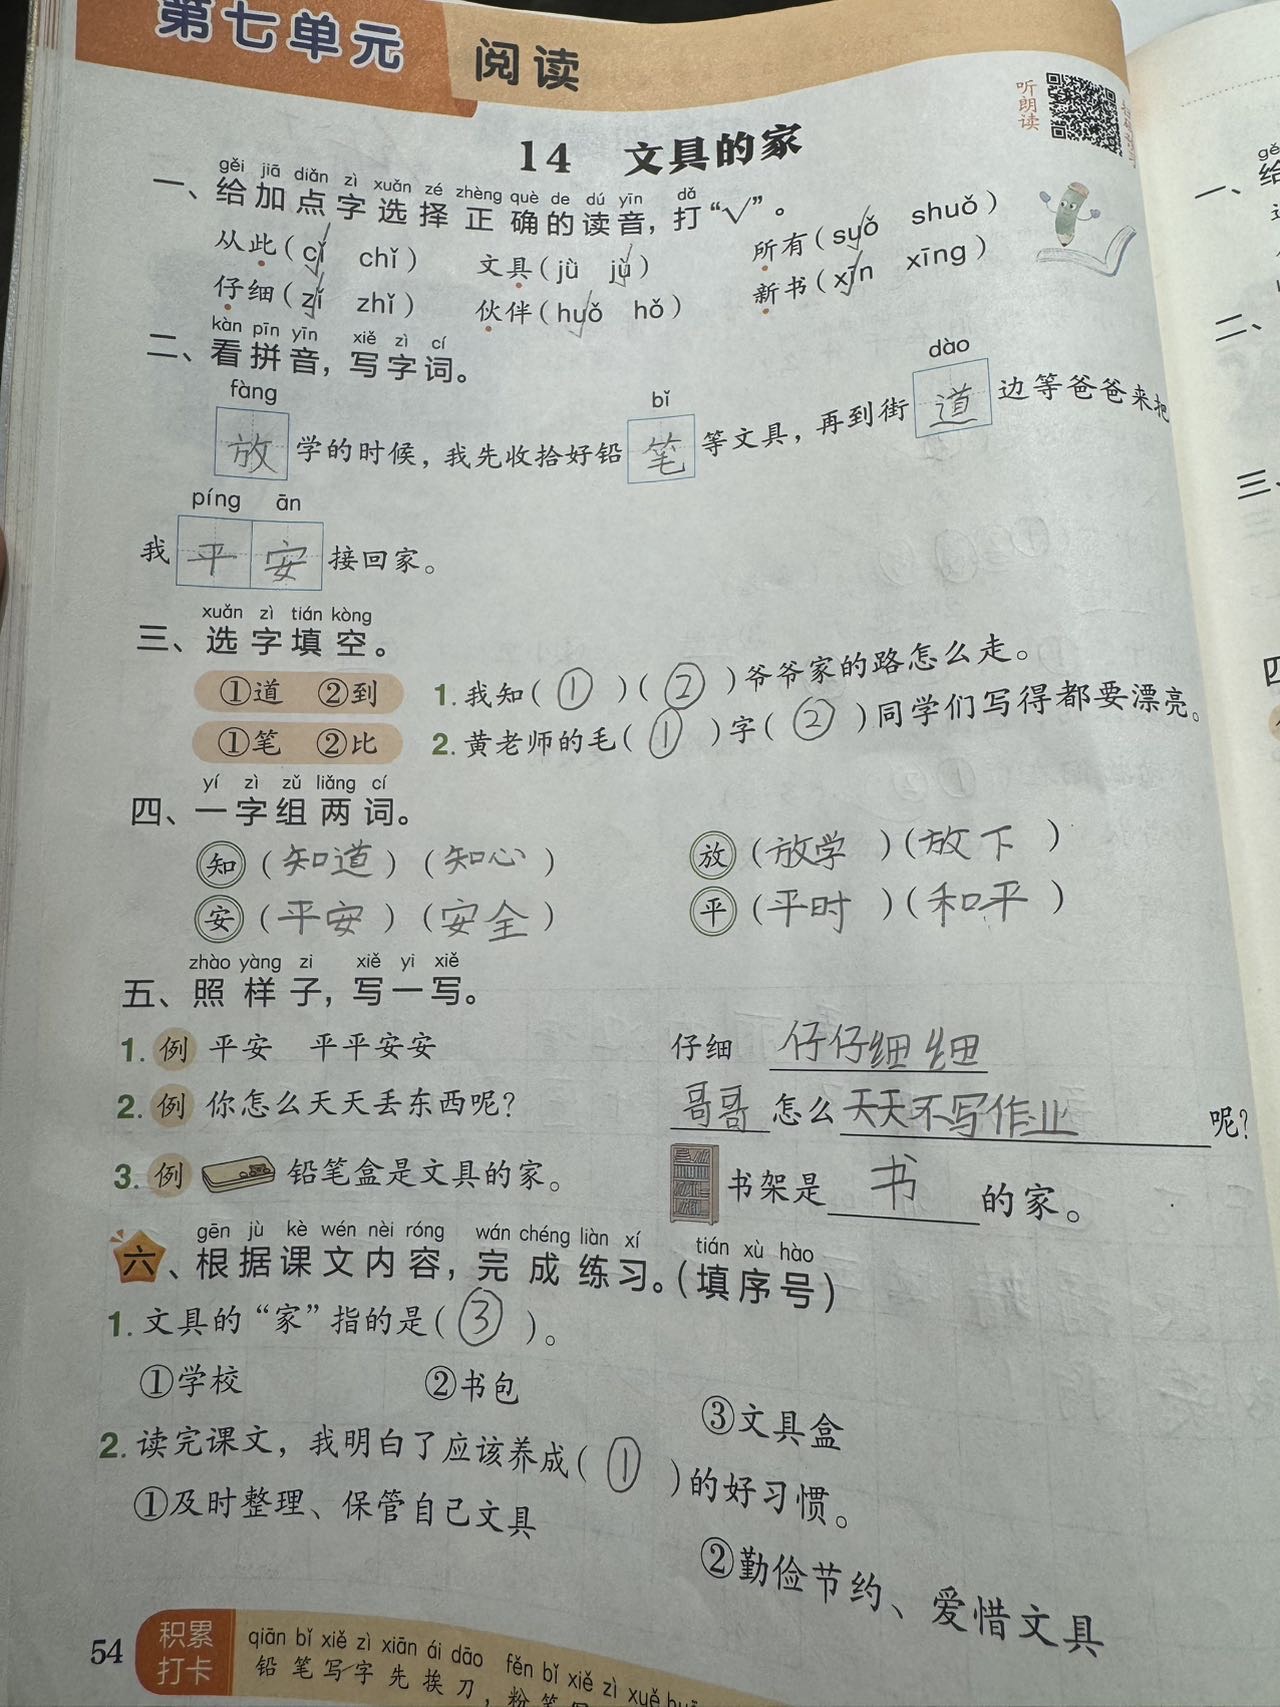 第七单元 阅读
听朗读
14 文具的家
gěi jiā diǎn zì xuǎn zé zhèng què de dú yīn dǎ
一、给加点字选择正确的读音，打“√”。
从此（cǐ√ chǐ） 文具（jǜ jù√） 所有（suǒ√ shuǒ）
仔细（zǐ√ zhǐ） 伙伴（huǒ√ hǒ） 新书（xīn√ xīng）
kàn pīn yīn xiě zì cí
二、看拼音，写字词。
fàng bǐ dào
放学的时候，我先收拾好铅笔等文具，再到街道边等爸爸来把
píng ān
我平安接回家。
xuǎn zì tián kòng
三、选字填空。
①道 ②到 1. 我知（①）（②）爷爷家的路怎么走。
①笔 ②比 2. 黄老师的毛（①）字（②）同学们写得都要漂亮。
yí zì zǔ liǎng cí
四、一字组两词。
知（知道）（知心） 放（放学）（放下）
安（平安）（安全） 平（平时）（和平）
zhào yàng zi xiě yi xiě
五、照样子，写一写。
1. 例 平安 平平安安 仔细 仔仔细细
2. 例 你怎么天天丢东西呢？ 哥哥怎么天天不写作业呢？
3. 例 铅笔盒是文具的家。 书架是书的家。
gēn jù kè wén nèi róng wán chéng liàn xí tián xù hào
六、根据课文内容，完成练习。（填序号）
1. 文具的“家”指的是（③）。
①学校 ②书包 ③文具盒
2. 读完课文，我明白了应该养成（①）的好习惯。
①及时整理、保管自己文具 ②勤俭节约、爱惜文具
54 积累打卡
qiān bǐ xiě zì xiān ái dāo fěn bǐ xiě zì xuě
铅笔写字先挨刀，粉笔